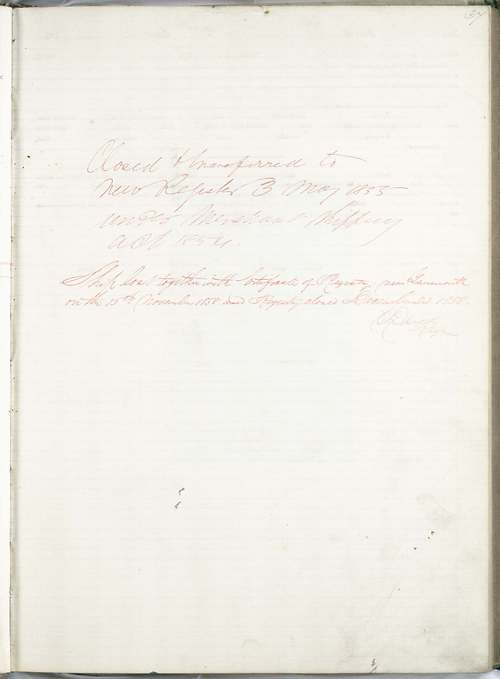 Closed & transferred to
new Register 3 May 1855
under Merchant Shipping
act 1854.
Ship lost together with Certificate of Registry near Yarmouth
on the 15th November 1858 and Registry closed 1858.